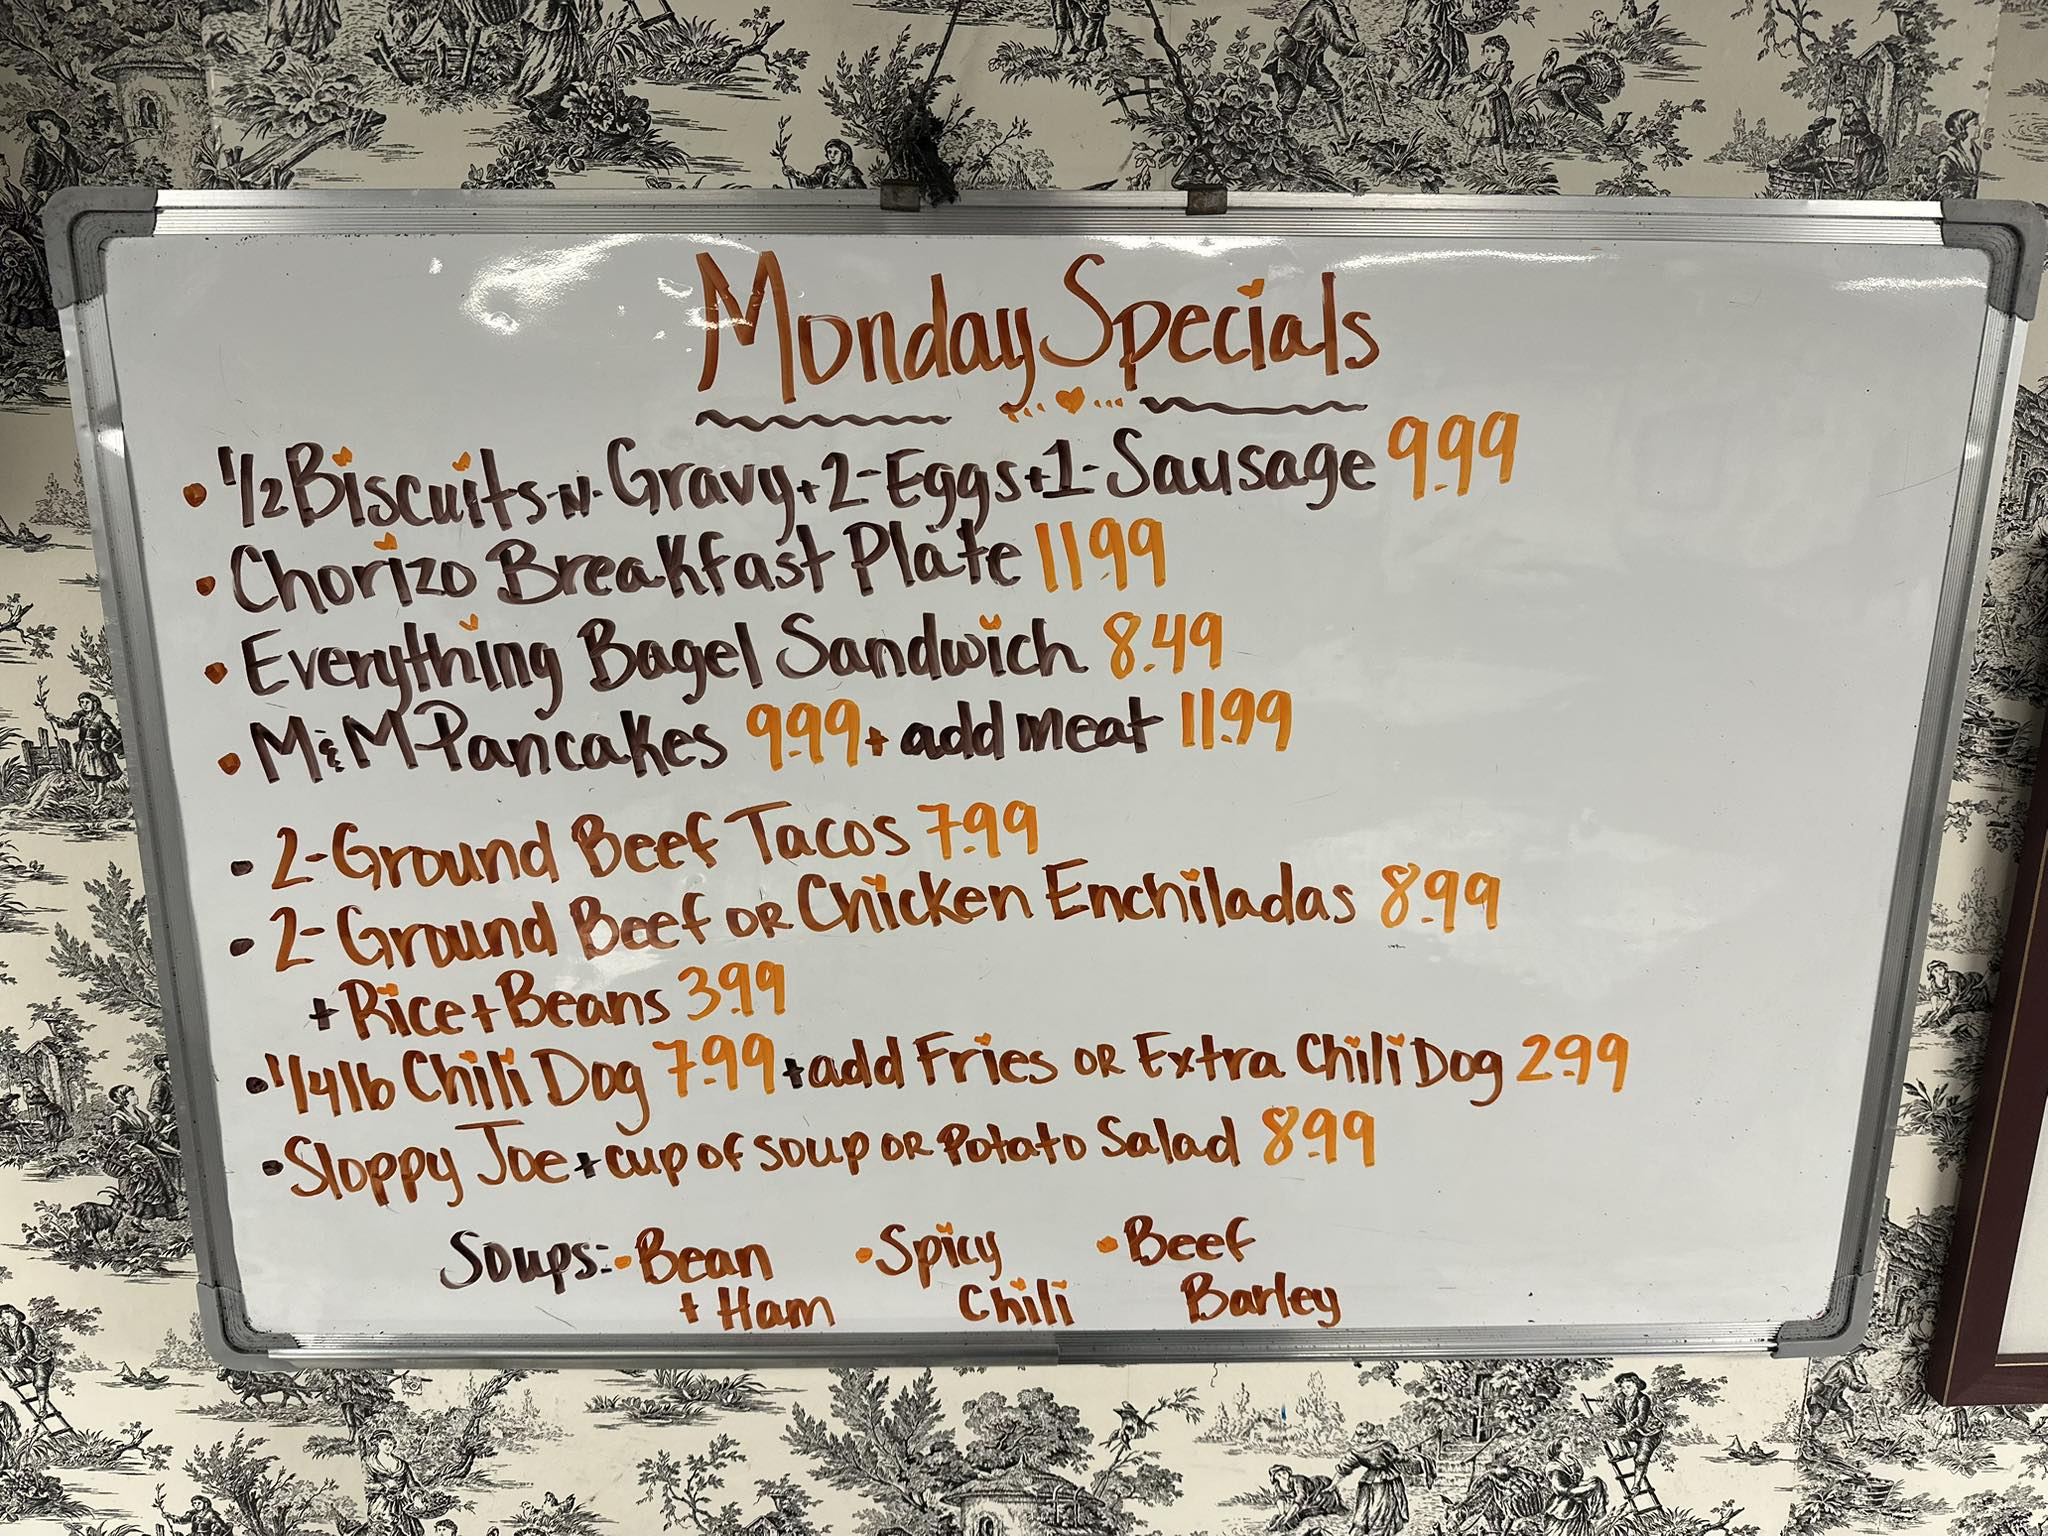 Monday Specials
• 1/2 Biscuits-N-Gravy + 2-Eggs + 1-Sausage 9.99
• Chorizo Breakfast Plate 11.99
• Everything Bagel Sandwich 8.49
• M&M Pancakes 9.99 + add meat 11.99
• 2-Ground Beef Tacos 7.99
• 2-Ground Beef OR Chicken Enchiladas 8.99
+ Rice + Beans 3.99
• 1/4 lb Chili Dog 7.99 + add Fries OR Extra Chili Dog 2.99
• Sloppy Joe + cup of soup OR Potato Salad 8.99
Soups: • Bean + Ham • Spicy Chili • Beef Barley